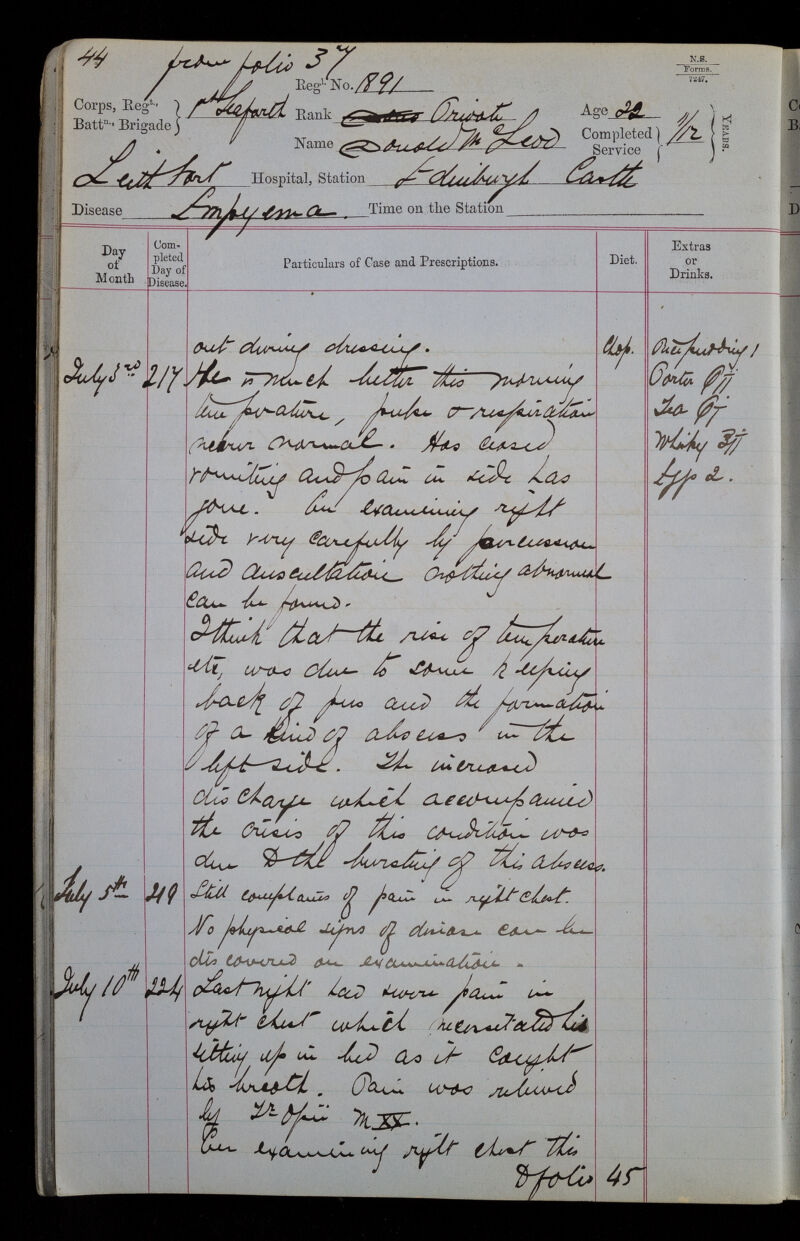 44 from folio 37
N.S.
Forms.
7247.
Regl. No. 1891
Corps, Regt., Battn., Brigade } 1st Seaforth Rank Private Age 22
Name Donald McLeod Completed Service { 7/12 } Years.
Leith Fort Hospital, Station Edinburgh Castle
Disease Empyema. Time on the Station
Day of Month
Completed Day of Disease.
Particulars of Case and Prescriptions.
Diet.
Extras or Drinks.
out during dressing. Chop. Rice pudding 1
July 3rd 217 He is much better this morning Porter
temperature, pulse & respiration Tea
nearer normal. Has ceased Whisky
vomiting and pain in side has Eggs 2.
gone. On examining right
side very carefully by percussion
and auscultation nothing abnormal
can be found.
I think that the rise of temperature
etc, was due to some keeping
back of pus and the formation
of a kind of abscess in the
left side. The increased
discharge which accompanied
the crisis of this condition was
due to the bursting of this abscess.
July 5th 219 Still complains of pain in right chest.
No physical signs of disease can be
discovered on examination.
July 10th 224 Last night had severe pain in
right chest which necessitated his
sitting up in bed as it caught
his breath. Pain was relieved
by Tr Opii ♏ XX.
On examining right chest this
To folio 45